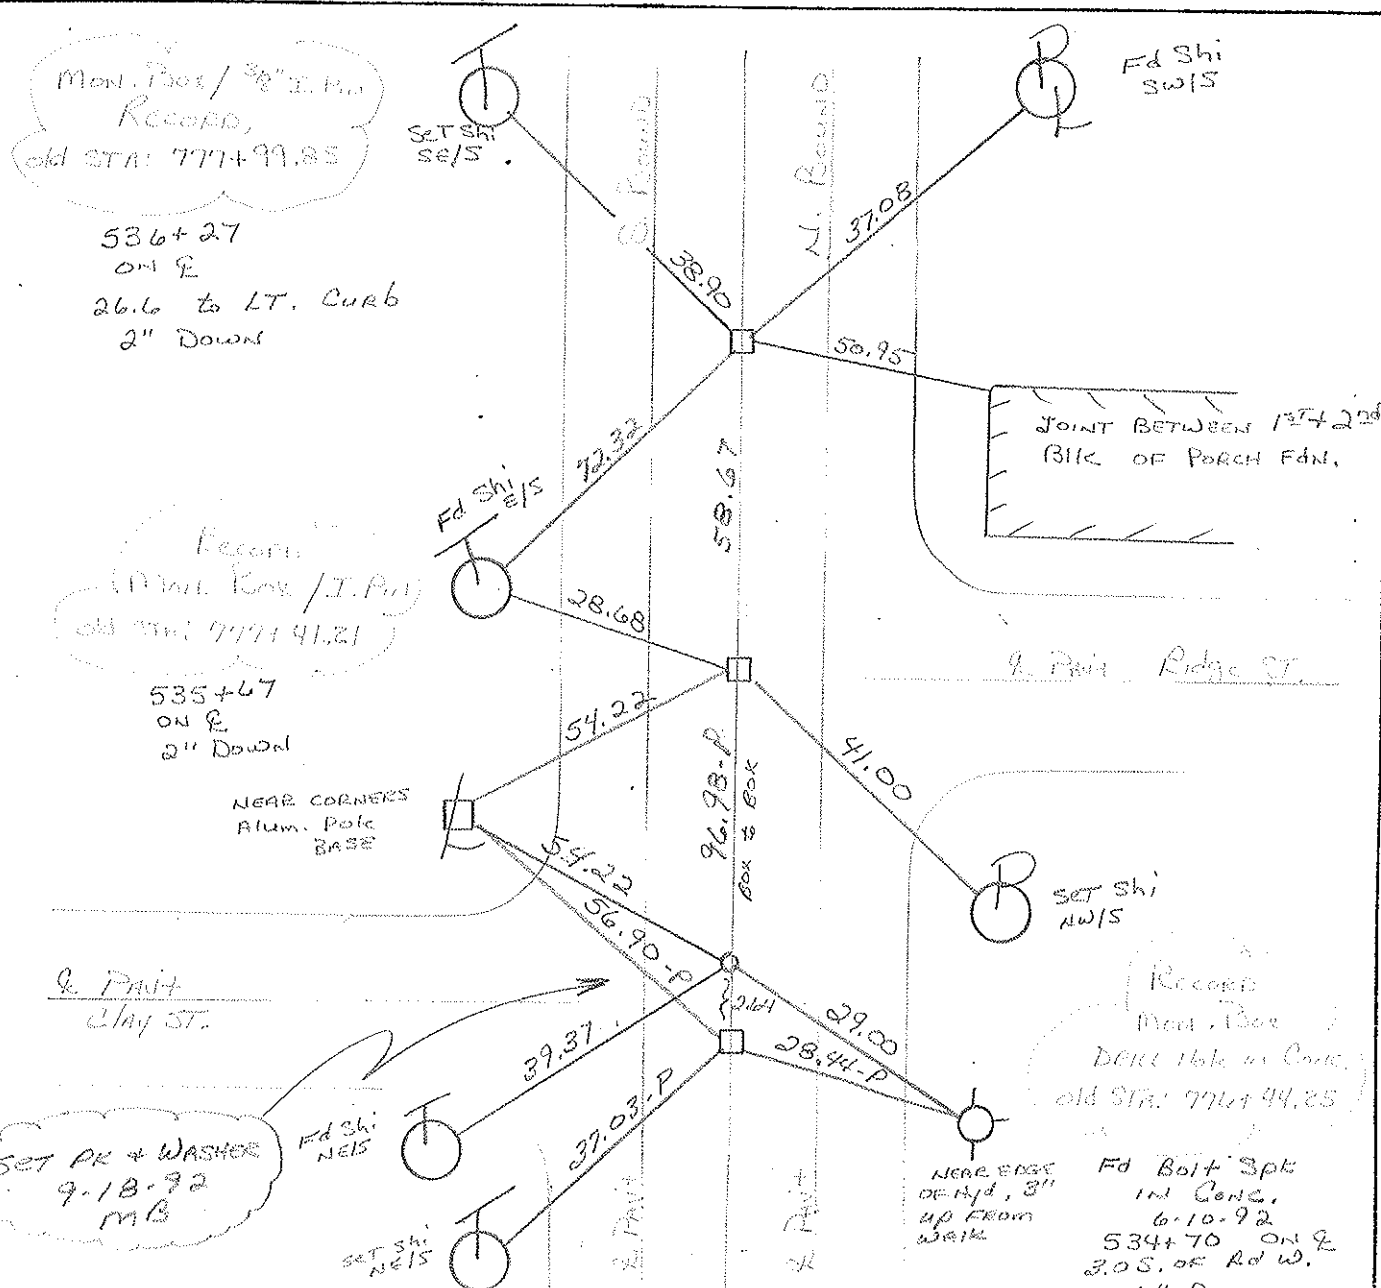 Mon. Box / 3/8" I. Pin
Record,
old STA: 777+99.85
536+27
ON ℄
26.6 to LT. Curb
2" Down
SeT Shi
SE/S
S. Bound
N. Bound
Fd Shi
SW/S
38.90
37.08
50.95
JOINT BETWEEN 1ST + 2nd
Blk OF PORCH FdN.
72.32
58.67
Fd Shi
E/S
Record
(Mon. Box / I. Pin)
old STA: 777+41.21
535+67
ON ℄
2" Down
28.68
℄ Pav't Ridge ST.
54.22
96.98-P
BOX to BOX
41.00
NEAR CORNERS
Alum. Pole
BASE
54.22
56.90-P
SET Shi
NW/S
℄ Pav't
Clay ST.
2.64
29.00
28.44-P
Record
Mon. Box
Drill Hole in Conc.
old STA: 776+44.25
39.37
37.03-P
SET PK + WASHER
9-18-92
MB
Fd Shi
NE/S
SET Shi
NE/S
℄ Pav't
℄ Pav't
NEAR EDGE
OF Hyd, 3"
up FROM
WALK
Fd Bolt Spk
IN CONC.
6-10-92
534+70 ON ℄
3.0 S. OF Rd W.